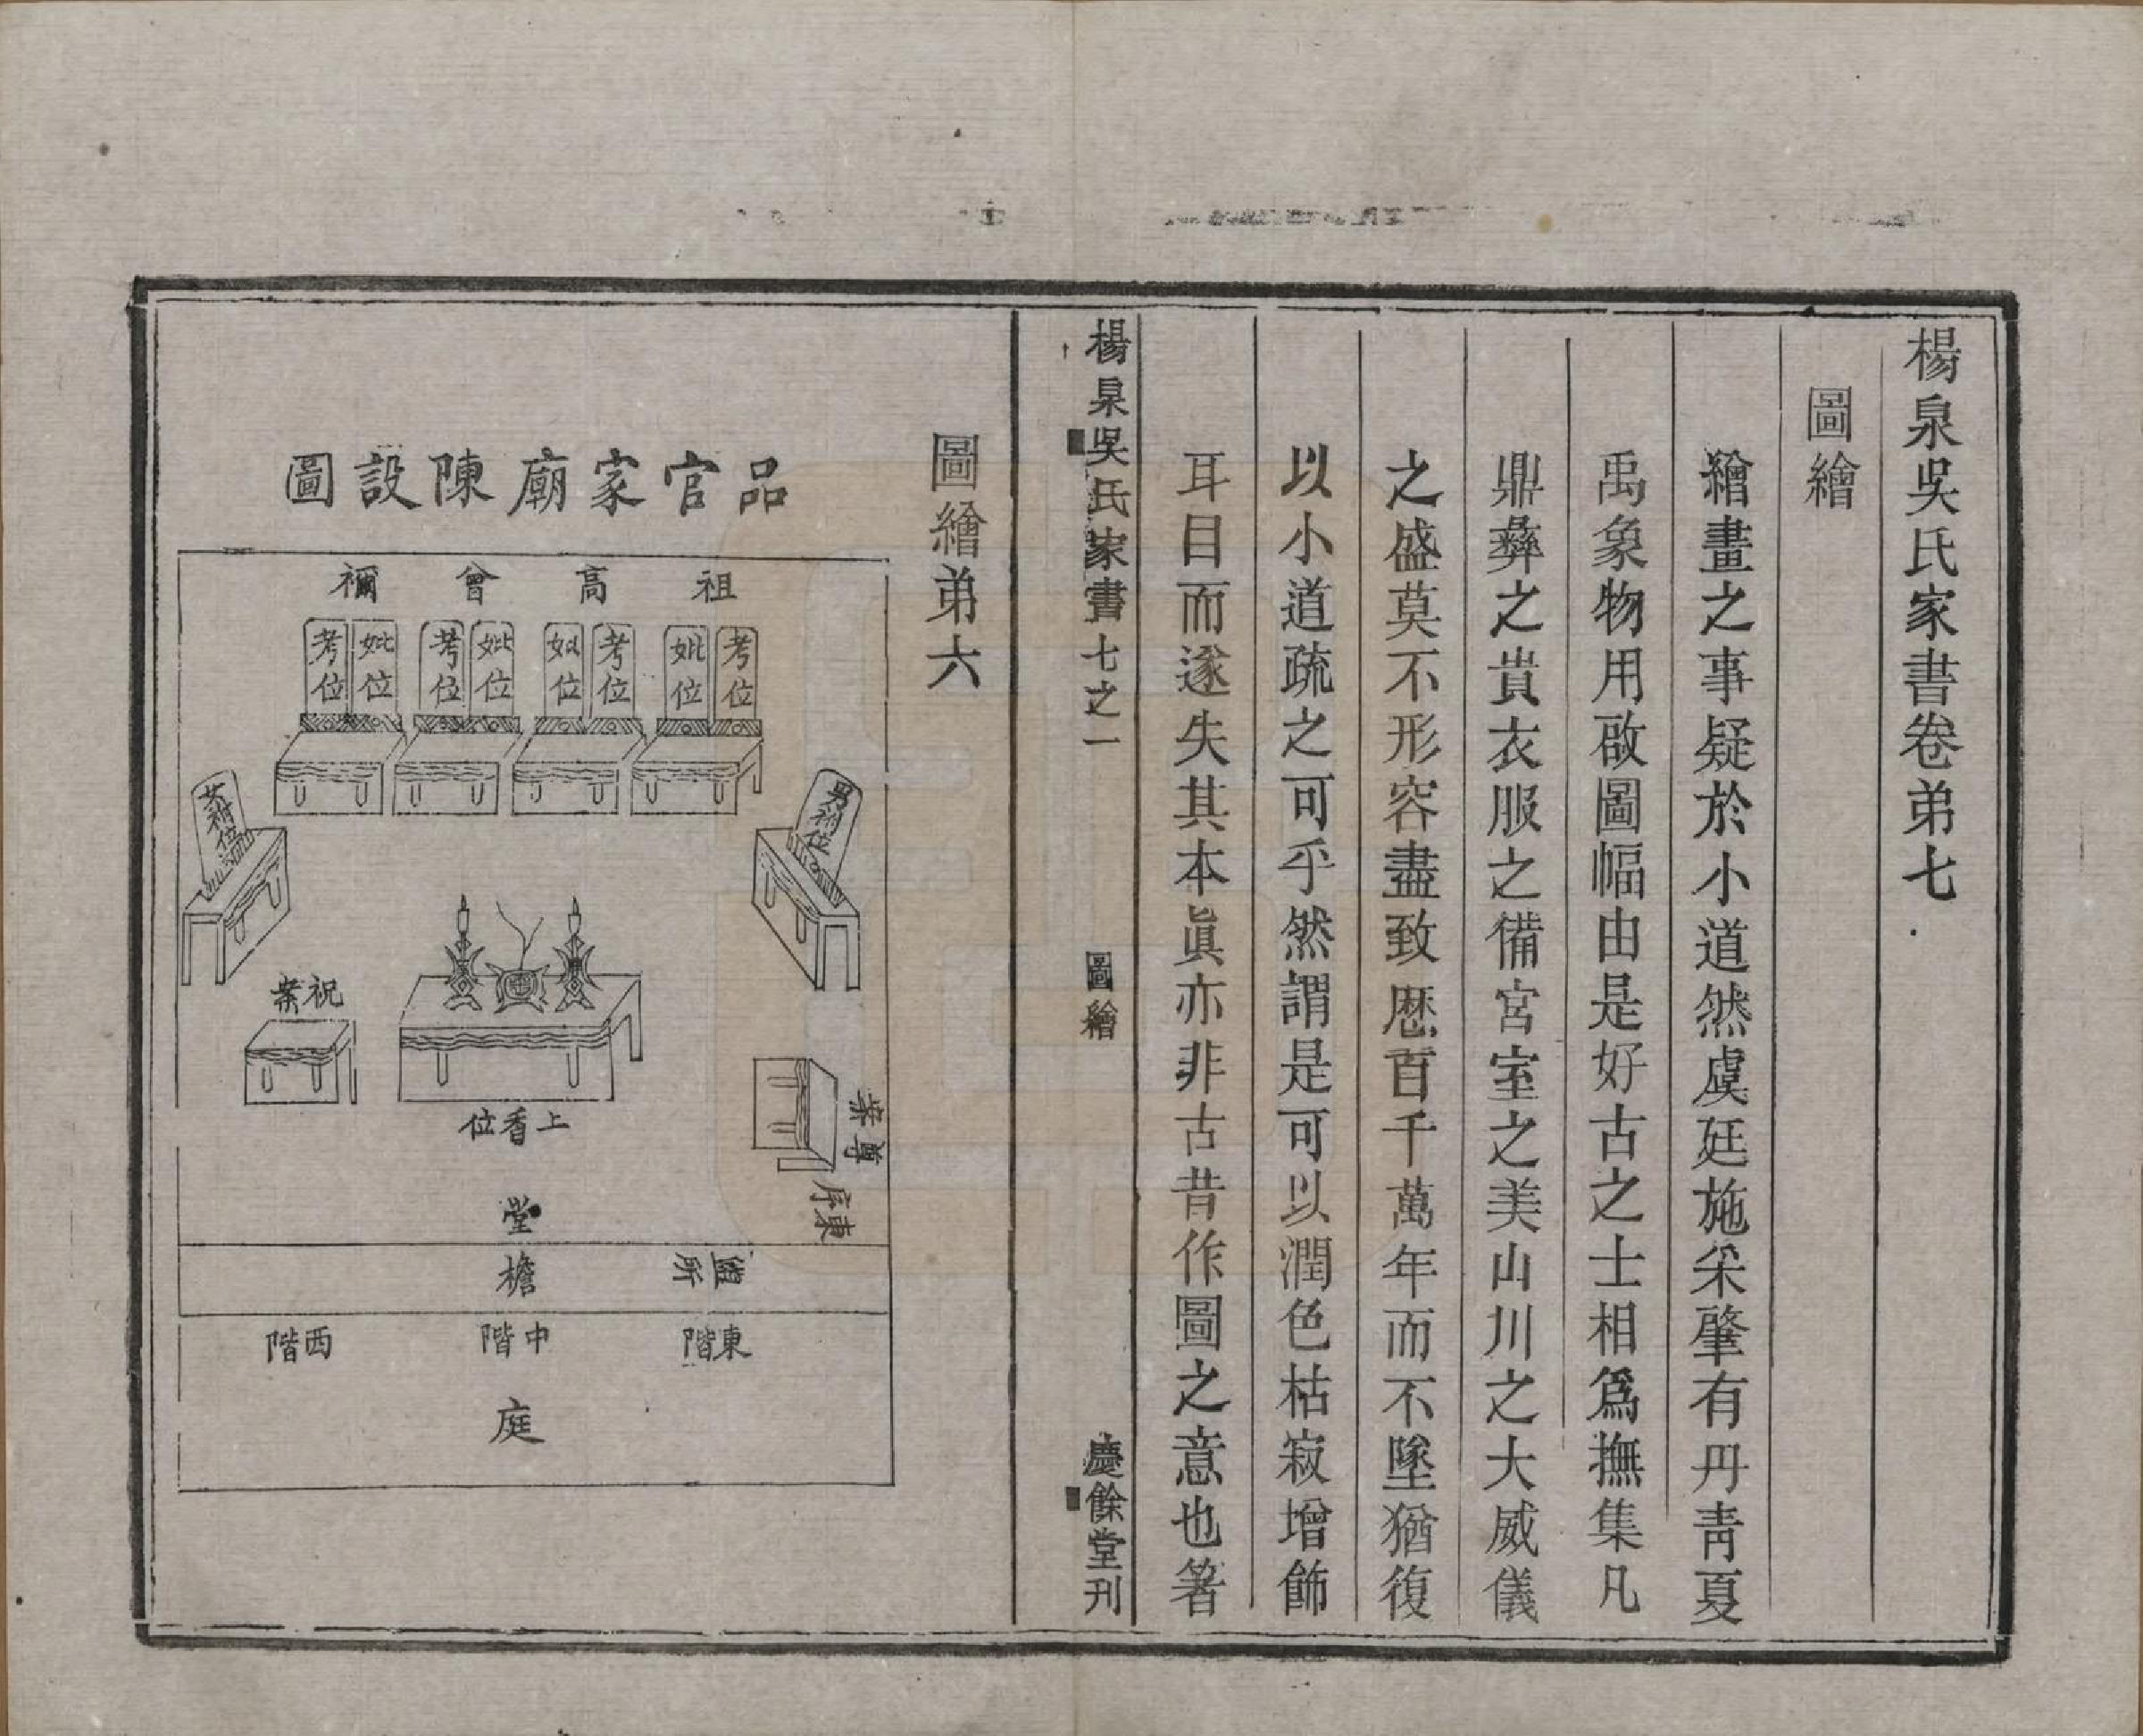 楊泉吳氏家書卷弟七
圖繪
繪畫之事疑於小道然虞廷施采肇有丹靑夏
禹象物用啟圖幅由是好古之士相爲撫集凡
鼎彝之貴衣服之備宮室之美山川之大威儀
之盛莫不形容盡致歷百千萬年而不墜猶復
以小道疏之可乎然謂是可以潤色枯寂增飾
耳目而遂失其本眞亦非古昔作圖之意也箸
楊泉吳氏家書 七之一 圖繪 慶餘堂刋
圖繪弟六
品官家廟陳設圖
祖 高 曾 禰
考位 妣位 考位 妣位 妣位 考位 妣位 考位
男祔位
女祔位
祝案
上香位
尊案
東序
堂
檐
盥所
東階 中階 西階
庭